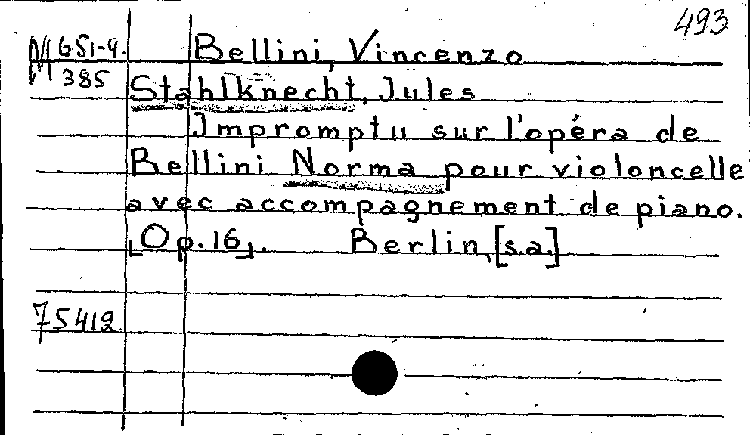 493
M 651-4. Bellini, Vincenzo
M 385 Stahlknecht, Jules
Impromptu sur l'opéra de
Bellini Norma pour violoncelle
avec accompagnement de piano.
⌊Op. 16⌋. Berlin, [s.a.]
75412